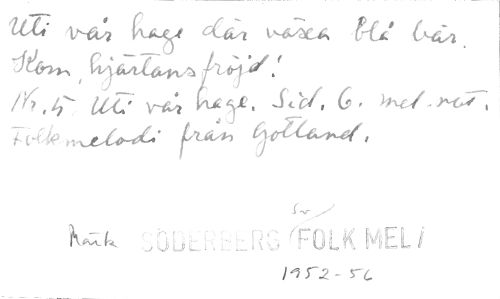 Uti vår hage där växa blå bär.
Kom, hjärtans fröjd!
Nr. 5. Uti vår hage. Sid. 6. mel. not.
Folkmelodi från Gotland.
Sv
Märk SÖDERBERG (FOLK MEL)
1952-56